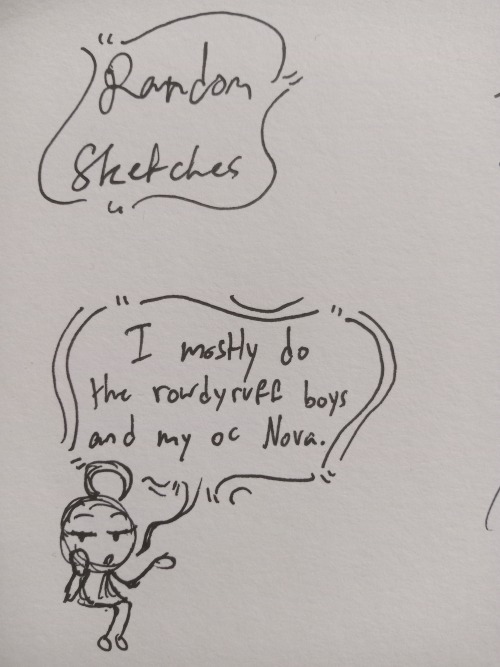 Random
Sketches
I mostly do
the rowdyruff boys
and my oc Nova.